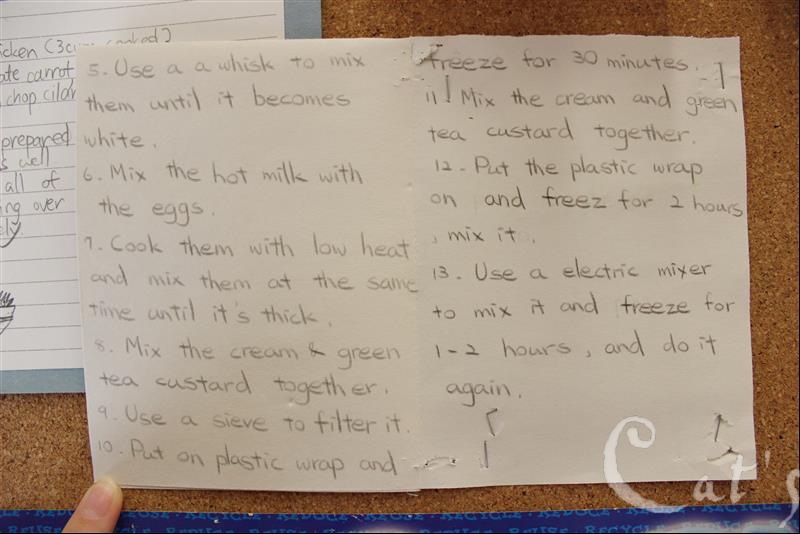 icken (3cups cooked)
ate carrot
chop cilan
prepared
s well
all of
ing over
ely
5. Use a a whisk to mix
them until it becomes
white.
6. Mix the hot milk with
the eggs.
7. Cook them with low heat
and mix them at the same
time until it's thick.
8. Mix the cream & green
tea custard together.
9. Use a sieve to filter it.
10. Put on plastic wrap and
freeze for 30 minutes.
11. Mix the cream and green
tea custard together.
12. Put the plastic wrap
on and freez for 2 hours
, mix it.
13. Use a electric mixer
to mix it and freeze for
1-2 hours, and do it
again.
Cat's
RECYCLE REDUCE REUSE RECYCLE